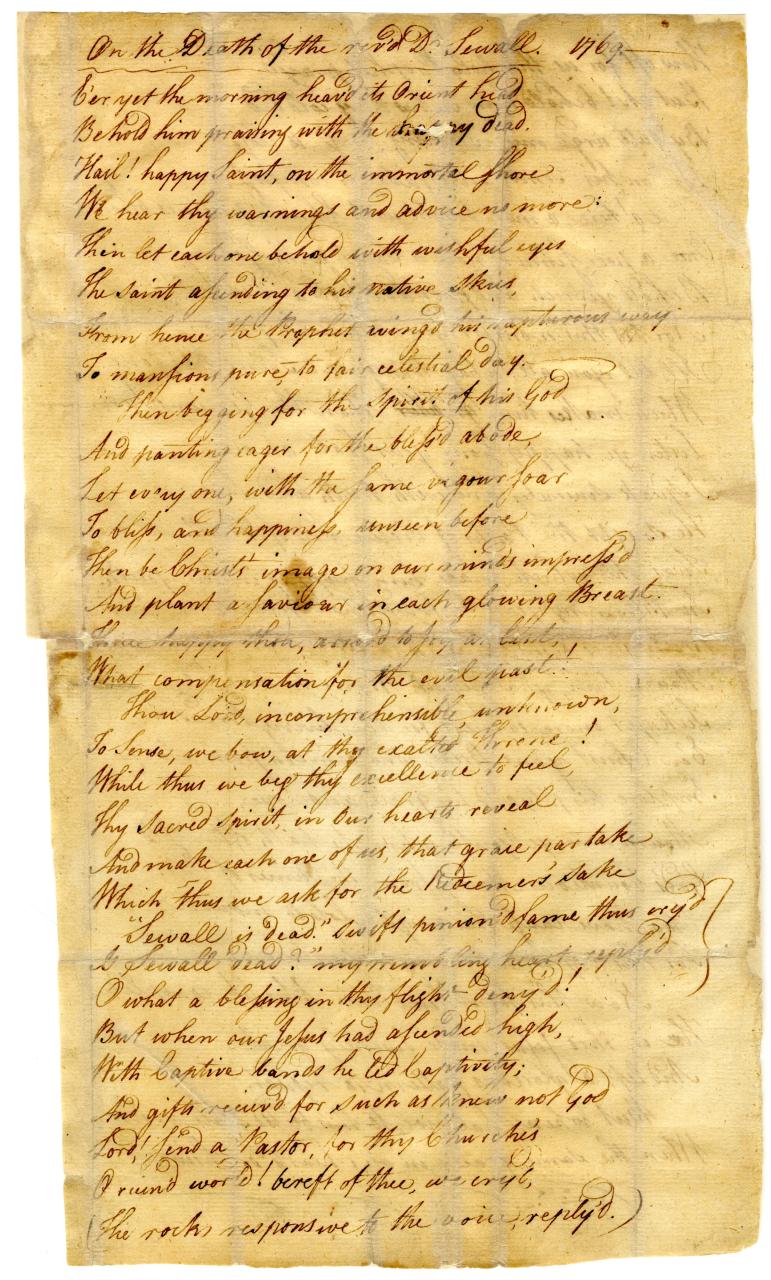 On the Death of the rev'd Dr. Sewall. 1769.—
E'er yet the morning heav'd its Orient head
Behold him praising with the happy dead.
Hail! happy Saint, on the immortal shore
We hear thy warnings and advice no more:
Then let each one behold with wishful eyes
The saint ascending to his native skies,
From hence the Prophet wing'd his rapturous way
To mansions pure, to fair celestial day.—
Then begging for the spirit of his God
And panting eager for the bless'd abode,
Let every one, with the same vigour soar
To bliss, and happiness, unseen before
Then be Christ's image on our minds impress'd
And plant a saviour in each glowing Breast.
Thrice happy thou, arriv'd to Joy at last,
What compensation for the evil past!
Thou Lord, incomprehensible, unknown,
To Sense, we bow, at thy exalted Throne!
While thus we beg thy excellence to feel,
Thy sacred spirit, in our hearts reveal
And make each one of us, that grace partake
Which thus we ask for the Redeemer's sake
"Sewall is dead." swift pinion'd fame thus cry'd
Is Sewall dead?" my trembling heart reply'd
O what a blessing in thy flight deny'd!
But when our Jesus had ascended high,
With Captive bands he led Captivity;
And gifts reciev'd for such as knew not God
Lord! Send a Pastor, for thy Churche's
O ruin'd world! bereft of thee, we cryd,
(The rocks responsive to the voice, reply'd.)